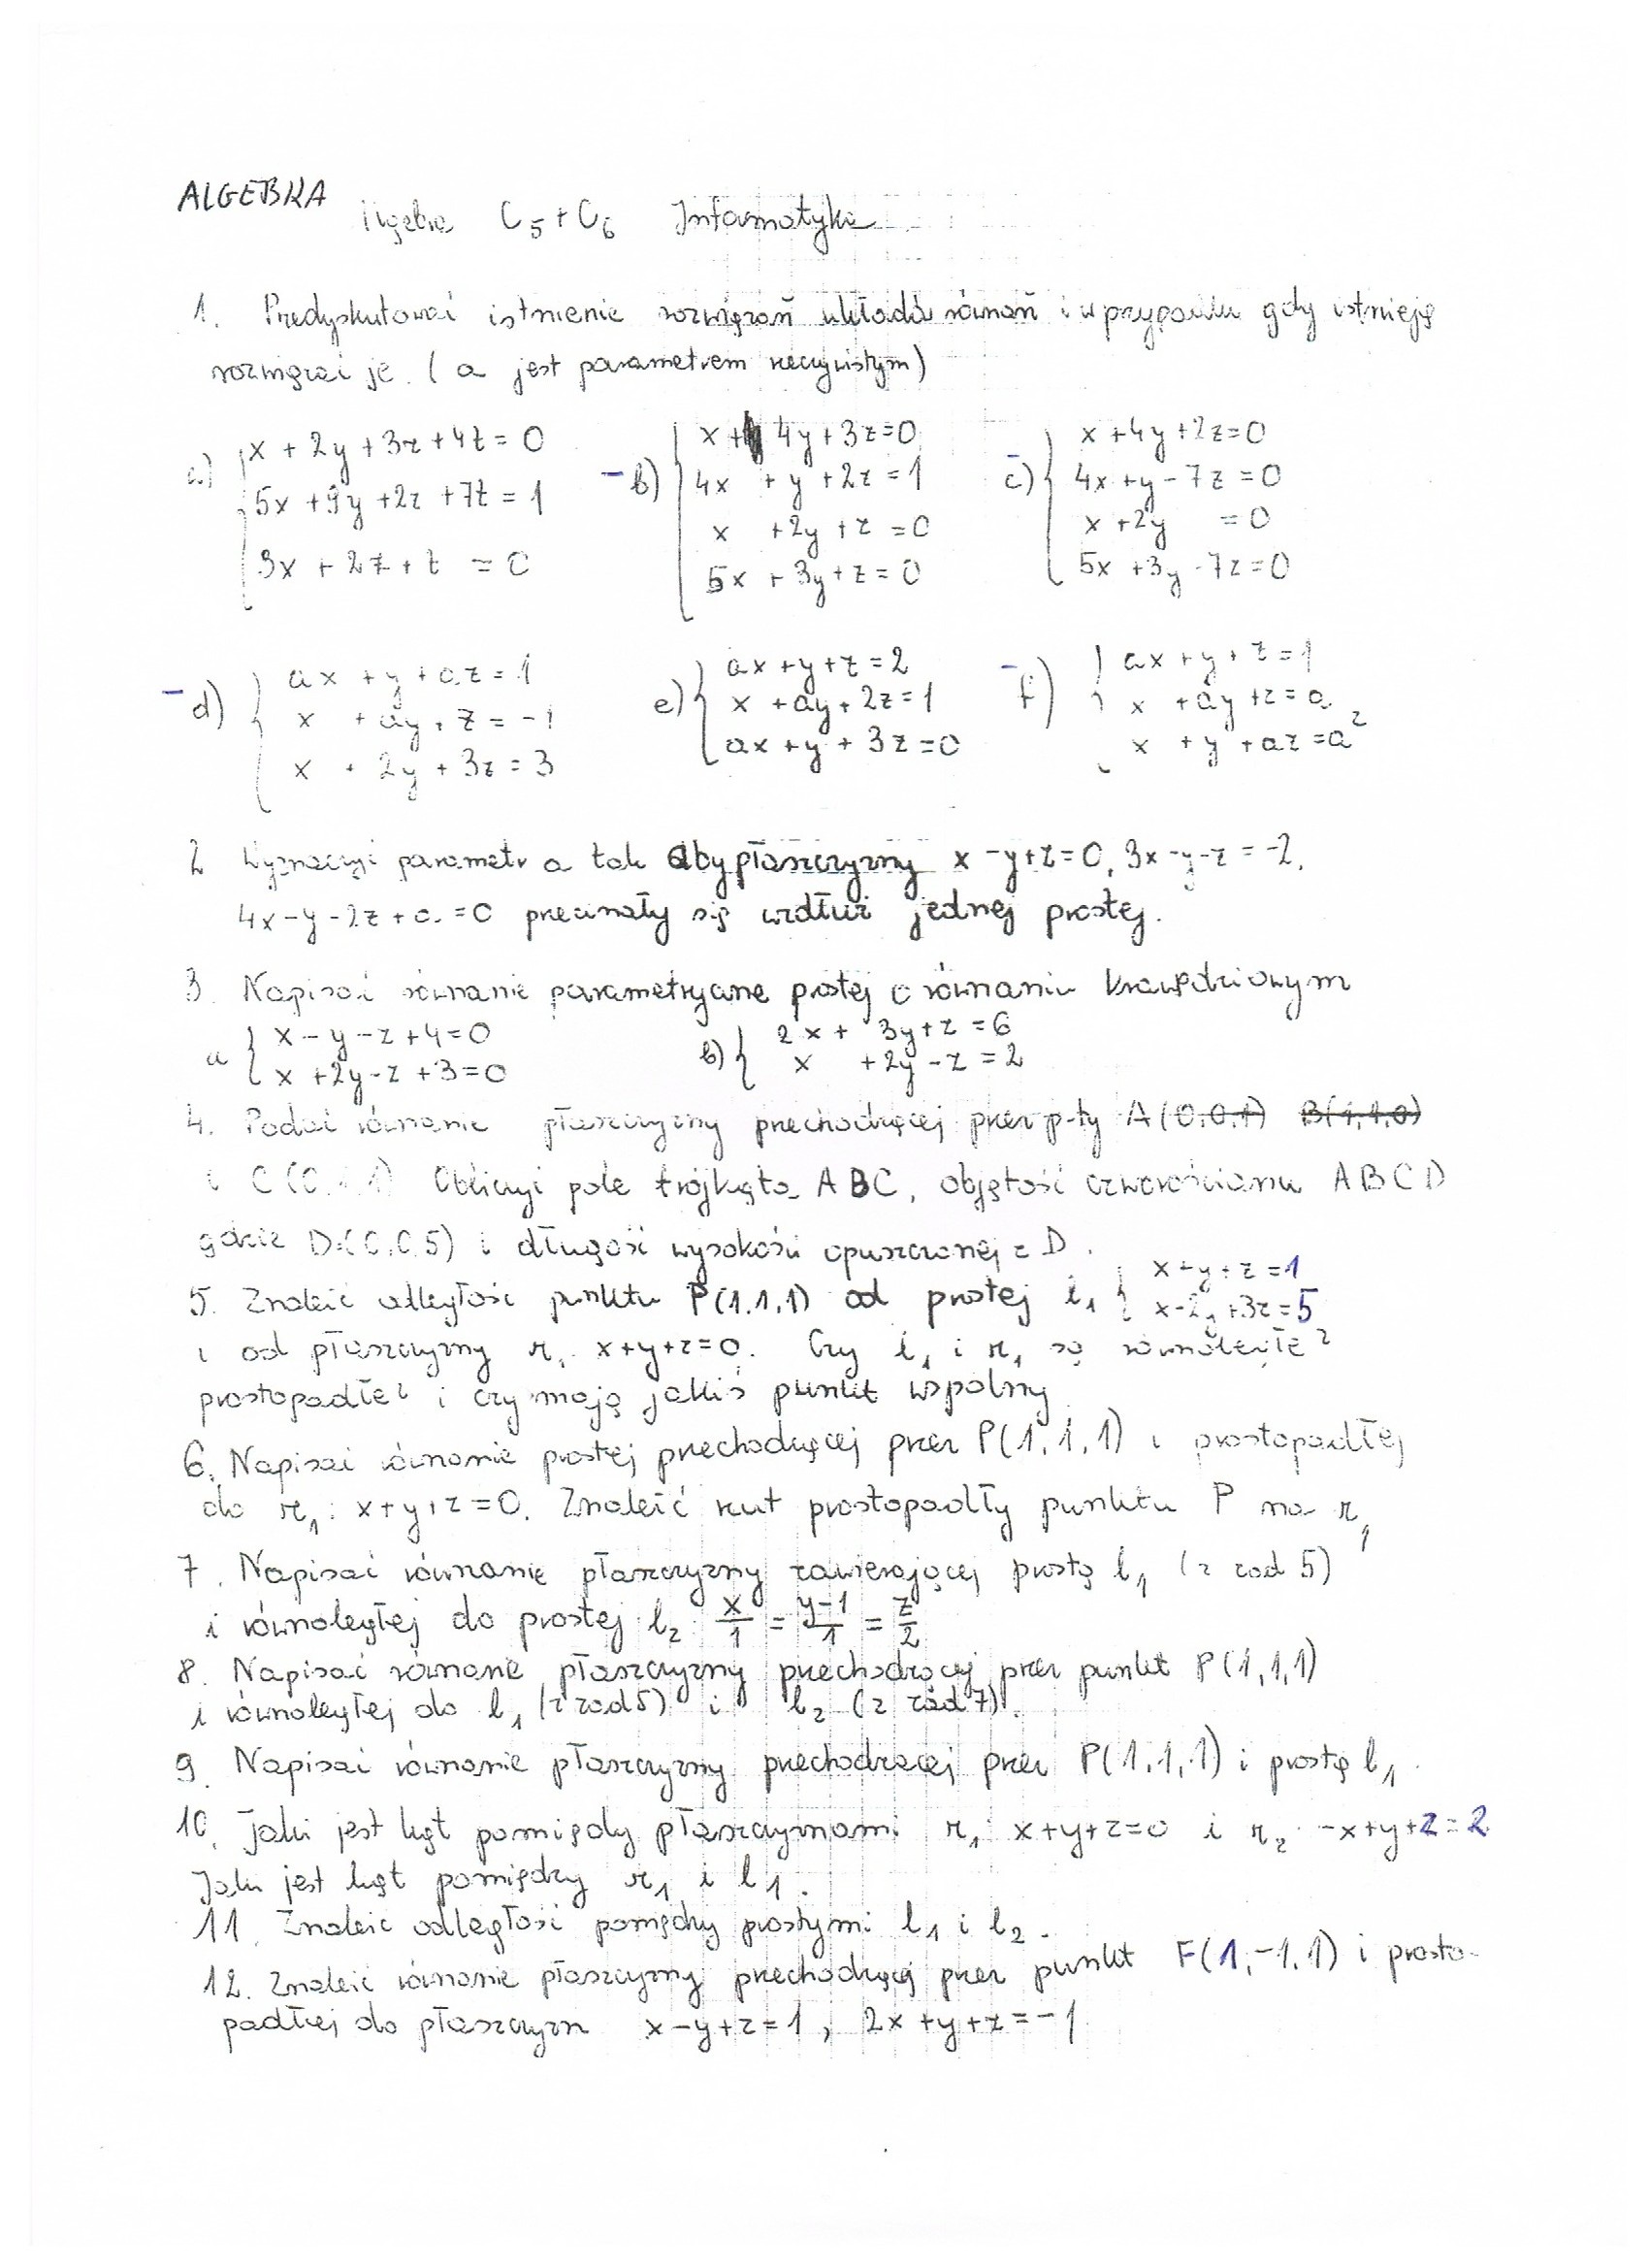 ALGEBRA
Algebra C5+C6 Informatyka
1. Przedyskutować istnienie rozwiązań układów równań i w przypadku gdy istnieją
rozwiązać je. (a jest parametrem rzeczywistym)
a) x + 2y + 3z + 4t = 0 -b) x + 4y + 3z = 0 -c) x + 4y + 2z = 0
5x + 9y + 2z + 7t = 1 4x + y + 2z = 1 4x + y - 7z = 0
3x + 2z + t = 0 x + 2y + z = 0 x + 2y = 0
5x + 3y + z = 0 5x + 3y - 7z = 0
-d) ax + y + az = 1 e) ax + y + z = 2 -f) ax + y + z = 1
x + ay + z = -1 x + ay + 2z = 1 x + ay + z = a
x + 2y + 3z = 3 ax + y + 3z = 0 x + y + az = a²
2 Wyznaczyć parametr a tak aby płaszczyzny x - y + z = 0, 3x - y - z = -2,
4x - y - 2z + a = 0 przecinały się wzdłuż jednej prostej.
3. Napisać równanie parametryczne prostej o równaniu krawędziowym
a { x - y - z + 4 = 0 b) { 2x + 3y + z = 6
x + 2y - z + 3 = 0 x + 2y - z = 2
4. Podać równanie płaszczyzny przechodzącej przez p-ty A(0,0,1) B(1,1,0)
i C(0,1,1) Obliczyć pole trójkąta ABC, objętość czworościanu ABCD
gdzie D(0,0,5) i długość wysokości opuszczonej z D.
5. Znaleźć odległość punktu P(1,1,1) od prostej l₁ { x + y + z = 1
x - 2y + 3z = 5
i od płaszczyzny π₁ x + y + z = 0. Czy l₁ i π₁ są równoległe?
prostopadłe? i czy mają jakiś punkt wspólny
6. Napisać równanie prostej przechodzącej przez P(1,1,1) i prostopadłej
do π₁: x + y + z = 0. Znaleźć rzut prostopadły punktu P na π₁
7. Napisać równanie płaszczyzny zawierającej prostą l₁ (z zad 5)
i równoległej do prostej l₂: x/1 = y-1/1 = z/2
8. Napisać równanie płaszczyzny przechodzącej przez punkt P(1,1,1)
i równoległej do l₁ (z zad 5) i l₂ (z zad 7).
9. Napisać równanie płaszczyzny przechodzącej przez P(1,1,1) i prostą l₁.
10. Jaki jest kąt pomiędzy płaszczyznami π₁: x + y + z = 0 i π₂: -x + y + z = 2
Jaki jest kąt pomiędzy π₁ i l₁.
11. Znaleźć odległość pomiędzy prostymi l₁ i l₂.
12. Znaleźć równanie płaszczyzny przechodzącej przez punkt F(1,-1,1) i prosto-
padłej do płaszczyzn x - y + z = 1, 2x + y + z = -1